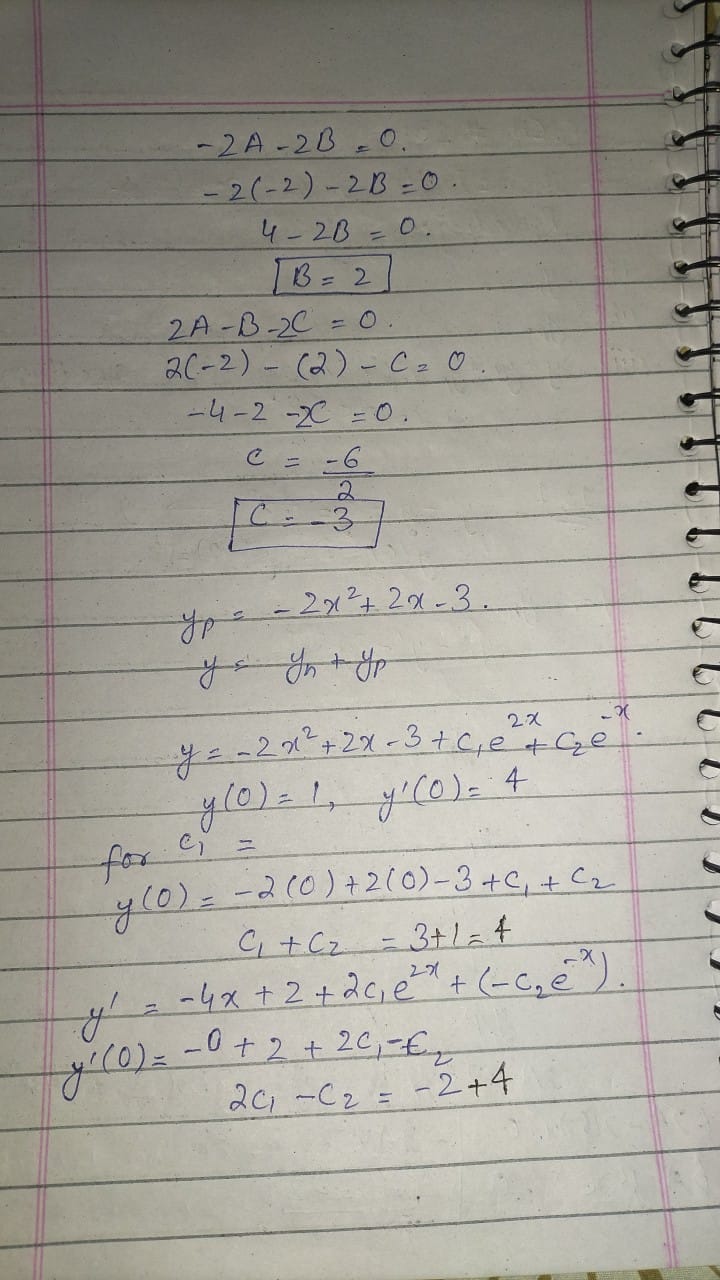 -2A - 2B = 0.
-2(-2) - 2B = 0.
4 - 2B = 0.
B = 2
2A - B - 2C = 0.
2(-2) - (2) - C = 0.
-4 - 2 - 2C = 0.
C = -6/2
C = -3
yp = -2x² + 2x - 3.
y = yh + yp
y = -2x² + 2x - 3 + C₁e²ˣ + C₂e⁻ˣ.
y(0) = 1, y'(0) = 4
for C₁ =
y(0) = -2(0) + 2(0) - 3 + C₁ + C₂
C₁ + C₂ = 3+1 = 4
y' = -4x + 2 + 2C₁e²ˣ + (-C₂e⁻ˣ).
y'(0) = -0 + 2 + 2C₁ - C₂
2C₁ - C₂ = -2 + 4